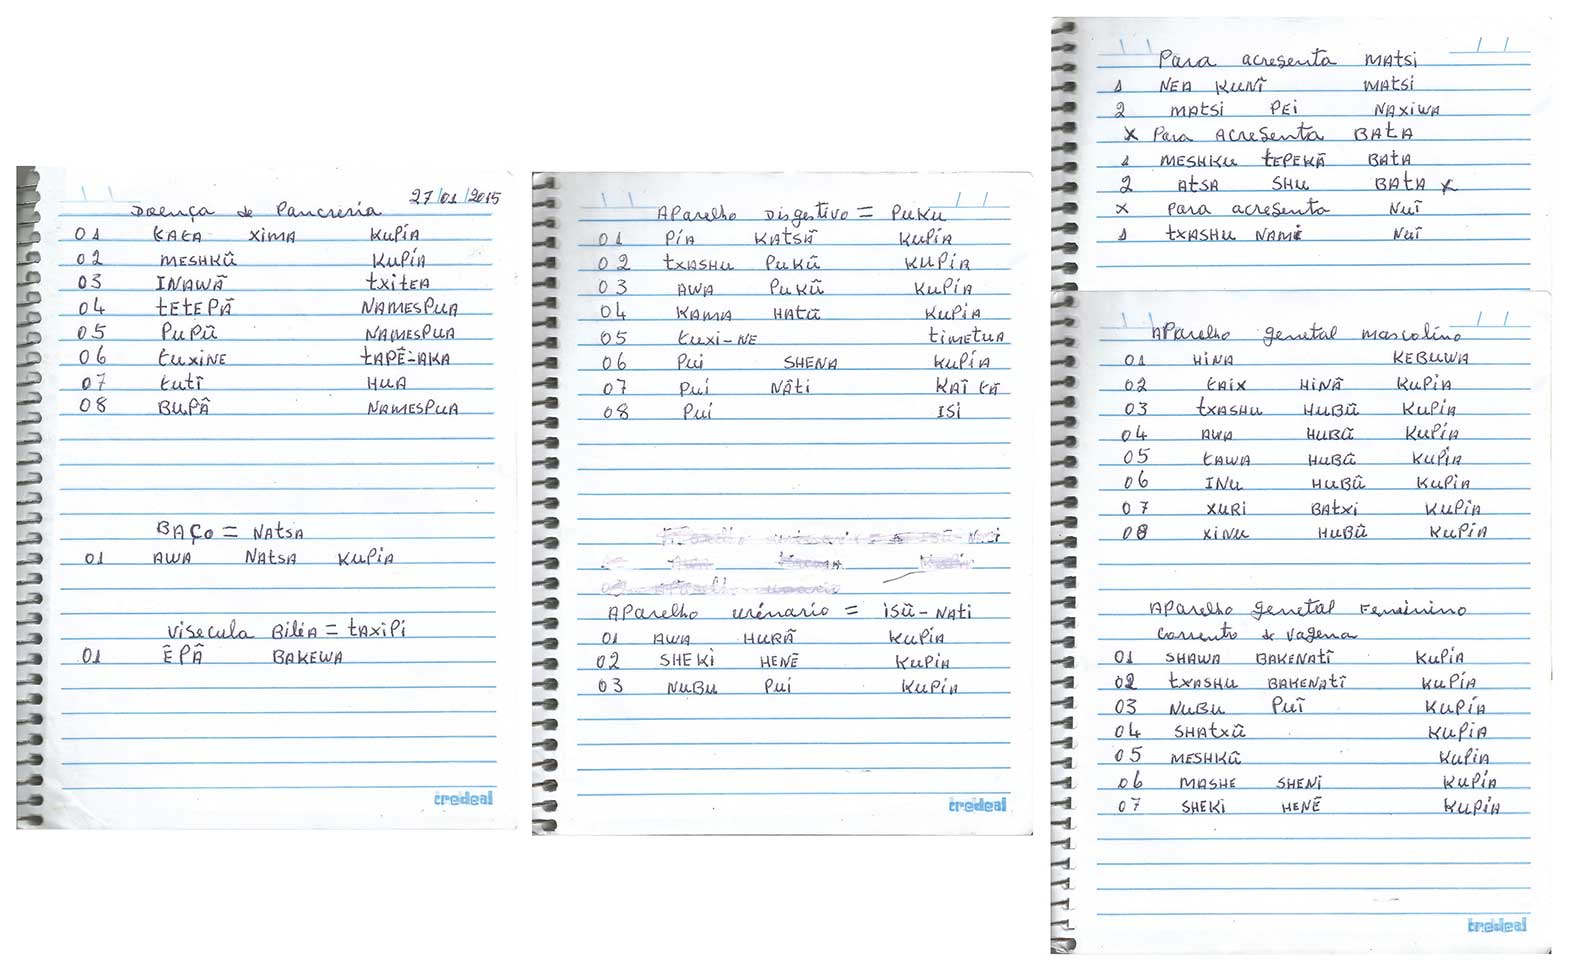 27/01/2015
Doença de Pancreria
01 KATA XIMA KUPÍA
02 MESHKŨ KUPÍA
03 INAWÃ TXITEA
04 TETEPÃ NAMESPUA
05 PUPŨ NAMESPUA
06 TUXINE TAPẼ-AKA
07 TUTĨ HUA
08 BUPÃ NAMESPUA
BAÇO = NATSA
01 AWA NATSA KUPÍA
Visecula Biléa = TAXIPI
01 ẼPÃ BAKEWA
credeal
Aparelho Disgestivo = PUKU
01 PÍA KATSÃ KUPÍA
02 TXASHU PUKŨ KUPÍA
03 AWA PUKŨ KUPÍA
04 KAMA HATŨ KUPÍA
05 TUXI-NE TIMETUA
06 PUI SHENA KUPÍA
07 PUI NÃTI KAĨ TÃ
08 PUI ISI
Aparelho urénario = ISŨ-NATI
01 AWA HURÃ KUPÍA
02 SHEKI HENẼ KUPÍA
03 NUBU PUI KUPÍA
credeal
Para acresenta MATSI
1 NEA KUNĨ MATSI
2 MATSI PEI NAXIWA
x Para acresenta BATA
1 MESHKU TEPEKÃ BATA
2 ATSA SHU BATA x
x Para acresenta NUĨ
1 TXASHU NAMI NUĨ
Aparelho genetal mascolino
01 HINA KEBUWA
02 TAIX HINÃ KUPÍA
03 TXASHU HUBŨ KUPÍA
04 AWA HUBŨ KUPÍA
05 TAWA HUBŨ KUPÍA
06 INU HUBŨ KUPÍA
07 XURI BATXI KUPÍA
08 XINU HUBŨ KUPÍA
Aparelho genetal Feminino
Corrento de vagena
01 SHAWA BAKENATĨ KUPÍA
02 TXASHU BAKENATĨ KUPÍA
03 NUBU PUĨ KUPÍA
04 SHATXŨ KUPÍA
05 MESHKŨ KUPÍA
06 MASHE SHENI KUPÍA
07 SHEKI HENẼ KUPÍA
credeal